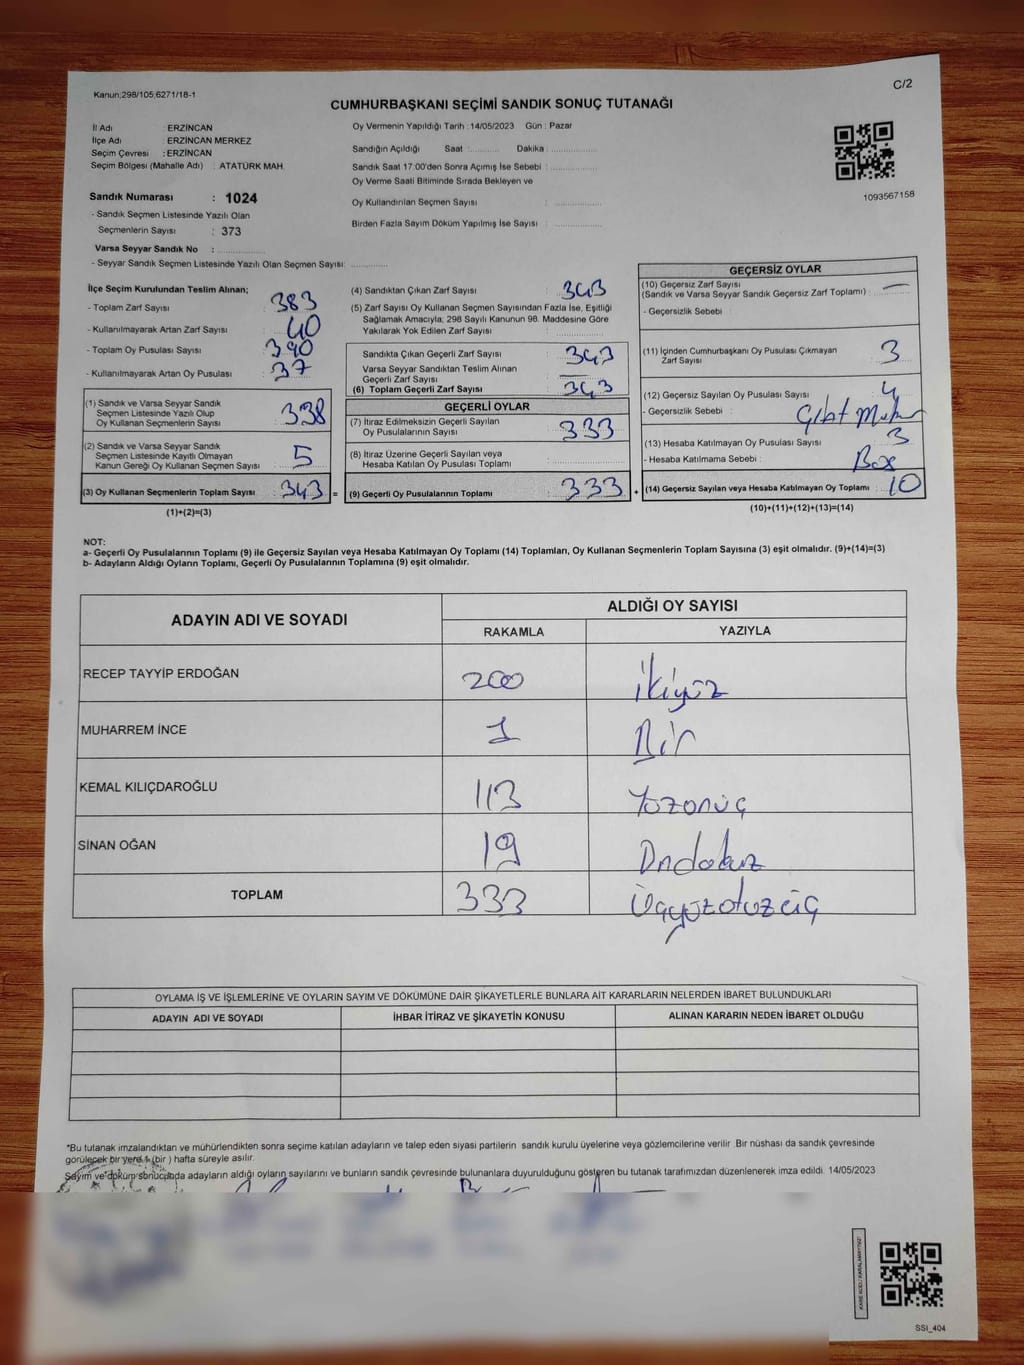 Kanun;298/105;6271/18-1
C/2
CUMHURBAŞKANI SEÇİMİ SANDIK SONUÇ TUTANAĞI
İl Adı : ERZİNCAN
İlçe Adı : ERZİNCAN MERKEZ
Seçim Çevresi : ERZİNCAN
Seçim Bölgesi (Mahalle Adı) : ATATÜRK MAH.
Sandık Numarası : 1024
- Sandık Seçmen Listesinde Yazılı Olan
Seçmenlerin Sayısı : 373
Varsa Seyyar Sandık No :
- Seyyar Sandık Seçmen Listesinde Yazılı Olan Seçmen Sayısı:
Oy Vermenin Yapıldığı Tarih :14/05/2023 Gün : Pazar
Sandığın Açıldığı Saat : Dakika :
Sandık Saat 17:00'den Sonra Açımış İse Sebebi :
Oy Verme Saati Bitiminde Sırada Bekleyen ve
Oy Kullandırılan Seçmen Sayısı :
Birden Fazla Sayım Döküm Yapılmış İse Sayısı :
1093567158
İlçe Seçim Kurulundan Teslim Alınan;
- Toplam Zarf Sayısı : 383
- Kullanılmayarak Artan Zarf Sayısı : 40
- Toplam Oy Pusulası Sayısı : 390
- Kullanılmayarak Artan Oy Pusulası : 37
(1) Sandık ve Varsa Seyyar Sandık
Seçmen Listesinde Yazılı Olup
Oy Kullanan Seçmenlerin Sayısı : 338
(2) Sandık ve Varsa Seyyar Sandık
Seçmen Listesinde Kayıtlı Olmayan
Kanun Gereği Oy Kullanan Seçmen Sayısı : 5
(3) Oy Kullanan Seçmenlerin Toplam Sayısı : 343 =
(1)+(2)=(3)
(4) Sandıktan Çıkan Zarf Sayısı : 343
(5) Zarf Sayısı Oy Kullanan Seçmen Sayısından Fazla İse, Eşitliği
Sağlamak Amacıyla; 298 Sayılı Kanunun 98. Maddesine Göre
Yakılarak Yok Edilen Zarf Sayısı :
Sandıkta Çıkan Geçerli Zarf Sayısı : 343
Varsa Seyyar Sandıktan Teslim Alınan
Geçerli Zarf Sayısı :
(6) Toplam Geçerli Zarf Sayısı : 343
GEÇERLİ OYLAR
(7) İtiraz Edilmeksizin Geçerli Sayılan
Oy Pusulalarının Sayısı : 333
(8) İtiraz Üzerine Geçerli Sayılan veya
Hesaba Katılan Oy Pusulası Toplamı :
(9) Geçerli Oy Pusulalarının Toplamı : 333 +
GEÇERSİZ OYLAR
(10) Geçersiz Zarf Sayısı
(Sandık ve Varsa Seyyar Sandık Geçersiz Zarf Toplamı) : —
- Geçersizlik Sebebi :
(11) İçinden Cumhurbaşkanı Oy Pusulası Çıkmayan
Zarf Sayısı : 3
(12) Geçersiz Sayılan Oy Pusulası Sayısı : 4
- Geçersizlik Sebebi :
(13) Hesaba Katılmayan Oy Pusulası Sayısı : 3
- Hesaba Katılmama Sebebi : Boş
(14) Geçersiz Sayılan veya Hesaba Katılmayan Oy Toplamı : 10
(10)+(11)+(12)+(13)=(14)
NOT:
a- Geçerli Oy Pusulalarının Toplamı (9) ile Geçersiz Sayılan veya Hesaba Katılmayan Oy Toplamı (14) Toplamları, Oy Kullanan Seçmenlerin Toplam Sayısına (3) eşit olmalıdır. (9)+(14)=(3)
b- Adayların Aldığı Oyların Toplamı, Geçerli Oy Pusulalarının Toplamına (9) eşit olmalıdır.
ADAYIN ADI VE SOYADI
ALDIĞI OY SAYISI
RAKAMLA YAZIYLA
RECEP TAYYİP ERDOĞAN 200 ikiyüz
MUHARREM İNCE 1 Bir
KEMAL KILIÇDAROĞLU 113 Yüzonüç
SİNAN OĞAN 19 Ondokuz
TOPLAM 333 Üçyüzotuzüç
OYLAMA İŞ VE İŞLEMLERİNE VE OYLARIN SAYIM VE DÖKÜMÜNE DAİR ŞİKAYETLERLE BUNLARA AİT KARARLARIN NELERDEN İBARET BULUNDUKLARI
ADAYIN ADI VE SOYADI İHBAR İTİRAZ VE ŞİKAYETİN KONUSU ALINAN KARARIN NEDEN İBARET OLDUĞU
*Bu tutanak imzalandıktan ve mühürlendikten sonra seçime katılan adayların ve talep eden siyasi partilerin sandık kurulu üyelerine veya gözlemcilerine verilir. Bir nüshası da sandık çevresinde
görülecek bir yere 1 (bir ) hafta süreyle asılır.
Sayım ve döküm sonucunda adayların aldığı oyların sayılarını ve bunların sandık çevresinde bulunanlara duyurulduğunu gösteren bu tutanak tarafımızdan düzenlenerek imza edildi. 14/05/2023
SSI_404